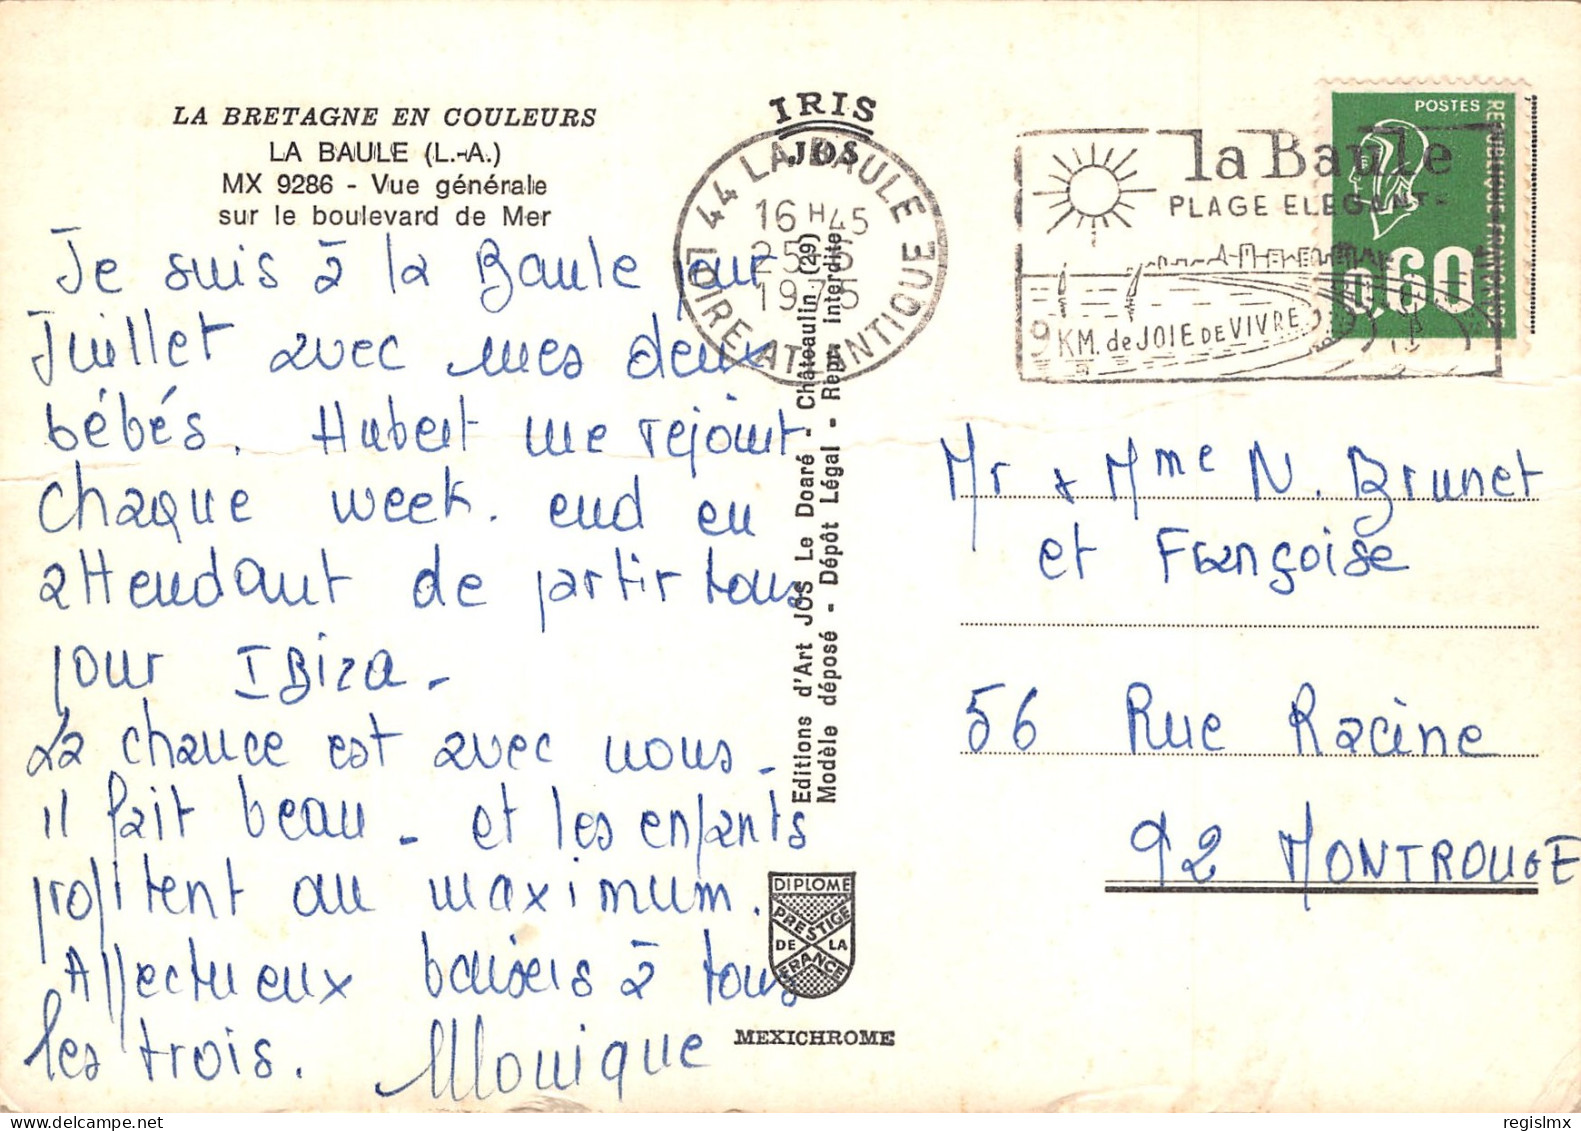 LA BRETAGNE EN COULEURS
LA BAULE (L.-A.)
MX 9286 - Vue générale
sur le boulevard de Mer
Je suis à la Baule pour
Juillet avec mes deux
bébés. Hubert me rejoint
chaque week. end en
attendant de partir tous
pour IBiza -
La chance est avec nous -
il fait beau - et les enfants
profitent au maximum.
Affectueux baisers à tous
les trois. Monique
IRIS
JOS
44 LA BAULE
16 H 45
1975
LOIRE-ATLANTIQUE
Editions d'Art JOS Le Doaré - Châteaulin (29)
Modèle déposé - Dépôt Légal - Repr. interdite
DIPLOME
PRESTIGE
DE LA
FRANCE
MEXICHROME
la Baule
PLAGE ELEGANTE
9 KM. de JOIE DE VIVRE
POSTES
REPUBLIQUE FRANCAISE
0,60
Mr + Mme N. Brunet
et Françoise
56 Rue Racine
92 MONTROUGE
regislmx